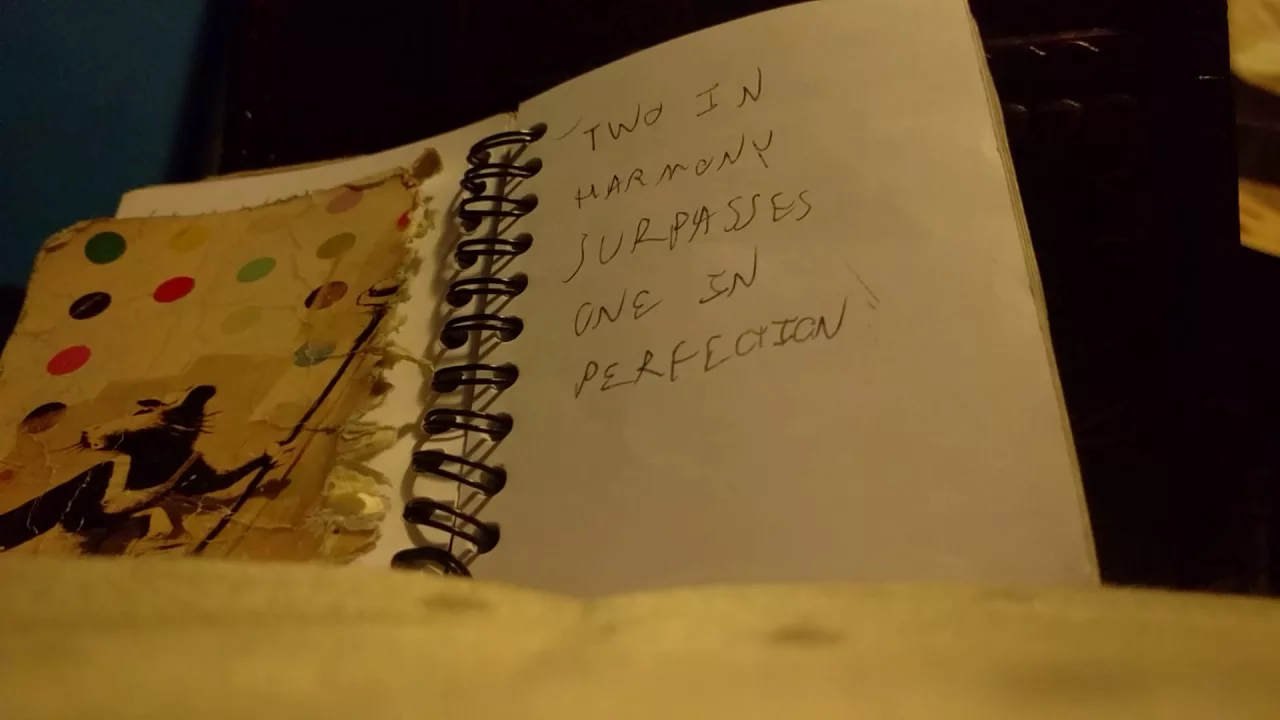 TWO IN
HARMONY
SURPASSES
ONE IN
PERFECTION